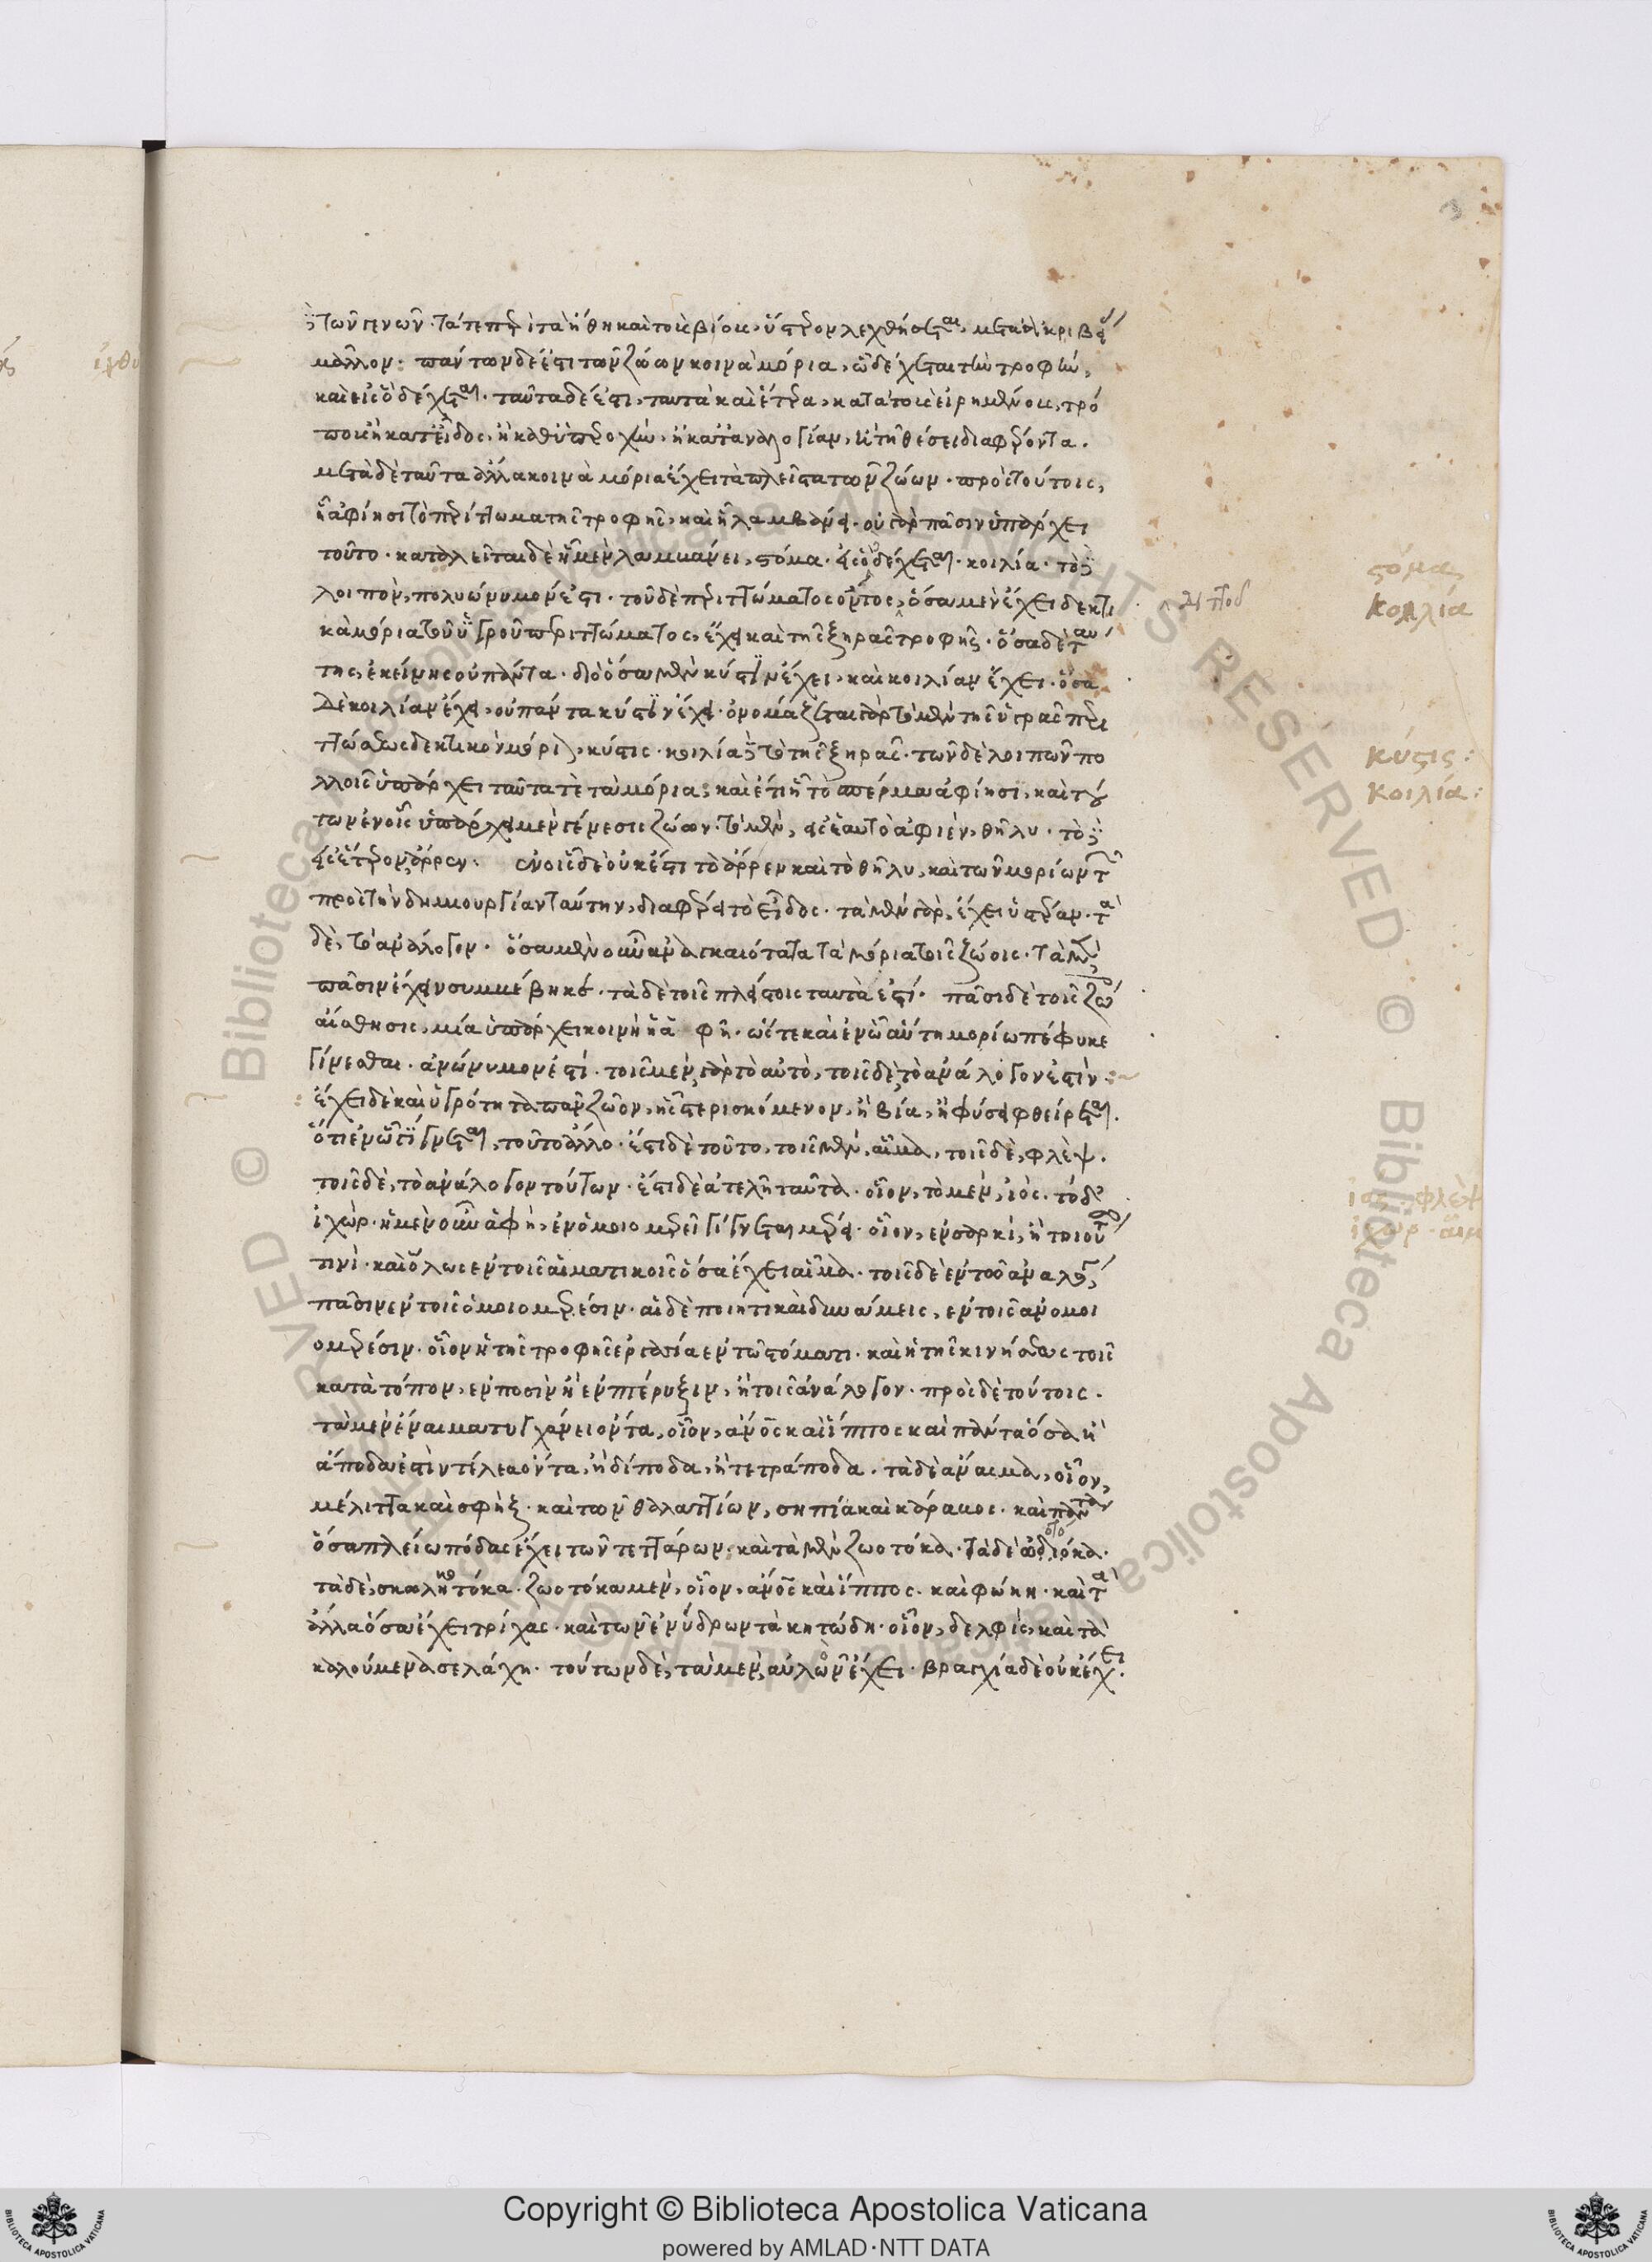 δὲ τῶν γενῶν· τά τε περὶ τὰ ἤθη καὶ τοὺς βίους, ὕστερον λεχθήσεται μετὰ ἀκριβείας
μᾶλλον: πάντων δέ ἐστι τῶν ζώων κοινὰ μόρια, ὧ δέχεται τὴν τροφὴν,
καὶ εἰς ὃ δέχεται. ταῦτα δέ ἐστι, ταυτὰ καὶ ἕτερα, κατὰ τοὺς εἰρημένους, τρό
πους ἢ κατ εἶδος, ἢ καθ ὑπεροχὴν, ἢ κατ ἀναλογίαν, ἢ τῇ θέσει διαφέροντα.
μετὰ δὲ ταῦτα ἄλλα κοινὰ μόρια ἔχει τὰ πλεῖστα τῶν ζώων. πρὸς τούτοις,
ἧ ἀφίησι τὸ περίττωμα τῆς τροφῆς, καὶ ἧ λαμβάνει. οὐ γὰρ πᾶσιν ὑπάρχει
τοῦτο. καλεῖται δὲ ἧ μὲν λαμβάνει, στόμα. εἰς ὃ δὲ δέχεται. κοιλία. τὸ δὲ
λοιπὸν, πολυώνυμόν ἐστι. τοῦ δὲ περιττώματος ὄντος, ὅσα μὲν ἔχει δεκτι
κὰ μόρια τοῦ ὑγροῦ περιττώματος, ἔχει καὶ τῆς ξηρᾶς τροφῆς. ὅσα δὲ ταύ
της, ἐκείνης οὐ πάντα. διὸ ὅσα μὲν κύστιν ἔχει, καὶ κοιλίαν ἔχει. ὅσα
δὲ κοιλίαν ἔχει, οὐ πάντα κύστιν ἔχει. ὀνομάζεται γὰρ τὸ μὲν τῆς ὑγρᾶς περι
ττώσεως δεκτικὸν μόριον, κύστις. κοιλία δὲ τὸ τῆς ξηρᾶς. τῶν δὲ λοιπῶν πο
λλοῖς ὑπάρχει ταῦτά τε τὰ μόρια, καὶ ἔτι ἧ τὸ σπέρμα ἀφίησι, καὶ τού
των ἐν οἷς ὑπάρχει μὲν γένεσις ζώων. τὸ μὲν, εἰς ἑαυτὸ ἀφιὲν, θῆλυ. τὸ δὲ
εἰς ἕτερον, ἄρρεν. ἐν οἷς δὲ οὐκ ἔστι τὸ ἄρρεν καὶ τὸ θῆλυ, καὶ τῶν μορίων τῶν
πρὸς τὴν δημιουργίαν ταύτην, διαφέρει τὸ εἶδος. τὰ μὲν γὰρ, ἔχει ὑστέραν. τὰ
δὲ, τὸ ἀνάλογον. ὅσα μὲν οὖν ἀναγκαιότατα τὰ μόρια τοῖς ζώοις. τὰ μὲν
πᾶσιν ἔχειν συμμέβηκε. τὰ δὲ τοῖς πλείστοις ταυτά ἐστί. πᾶσι δὲ τοῖς ζώοις
αἴσθησις, μία ὑπάρχει κοινὴ ἡ ἁφή. ὥστε καὶ ἐν ὧ αὕτη μορίω πέφυκε
γίνεσθαι. ἀνώνυμόν ἐστί. τοῖς μὲν, γὰρ τὸ αὐτὸ, τοῖς δὲ, τὸ ἀνάλογόν ἐστίν:
ἔχει δὲ καὶ ὑγρότητα πᾶν ζῶον, ἧς στερισκόμενον, ἢ βία, ἢ φύσει φθείρεται.
ὅτι ἐν ὧ γίγνεται, τοῦτο ἄλλο. ἔστι δὲ τοῦτο, τοῖς μὲν, αἷμα, τοῖς δὲ, φλὲψ.
τοῖς δὲ, τὸ ἀνάλογον τούτων. ἔστι δὲ ἀτελῆ ταῦτα. οἷον, τὸ μὲν, ἰὸς. τὸ δὲ
ἰχὼρ. ἡ μὲν οὖν ἁφὴ, ἐν ὁμοιομερεῖ γίγνεται μέρει. οἷον, ἐν σαρκὶ, ἢ τοιούτω
τινὶ. καὶ ὅλως ἐν τοῖς αἱματικοῖς ὅσα ἔχει αἷμα. τοῖς δὲ ἐν τῶ ἀναλόγω
πᾶσιν ἐν τοῖς ὁμοιομερέσιν. αἱ δὲ ποιητικαὶ δυνάμεις, ἐν τοῖς ἀνομοι
ομερέσιν. οἷον ἡ τῆς τροφῆς ἐργασία ἐν τῶ στόματι. καὶ ἡ τῆς κινήσεως τοῖς
κατὰ τόπον, ἐν ποσὶν ἢ ἐν πτέρυξιν, ἢ τοῖς ἀνάλογον. πρὸς δὲ τούτοις.
τὰ μὲν ἔναιμα τυγχάνει ὄντα, οἷον, ἄνθρωπος καὶ ἵππος καὶ πάντα ὅσα ἢ
ἄποδά ἐστιν τέλεα ὄντα, ἢ δίποδα, ἢ τετράποδα. τὰ δὲ ἄναιμα, οἷον,
μέλιττα καὶ σφὴξ. καὶ τῶν θαλαττίων, σηπία καὶ κάραβος. καὶ πάντα
ὅσα πλείω πόδας ἔχει τῶν τεττάρων. καὶ τὰ μὲν ζωοτόκα. τὰ δὲ ὠοτόκα.
τὰ δὲ, σκωληκοτόκα. ζωοτόκα μὲν, οἷον, ἄνθρωπος καὶ ἵππος. καὶ φώκη. καὶ τὰ
ἄλλα ὅσα ἔχει τρίχας. καὶ τῶν ἐνύδρων τὰ κητώδη. οἷον, δελφὶς, καὶ τὰ
καλούμενα σελάχη. τούτων δὲ, τὰ μὲν, αὐλὸν ἔχει. βραγχία δὲ οὐκ ἔχει.
στόμα
κοιλία
κύστις:
κοιλία:
ἰος. φλὲψ
ἰχωρ. αἷμ